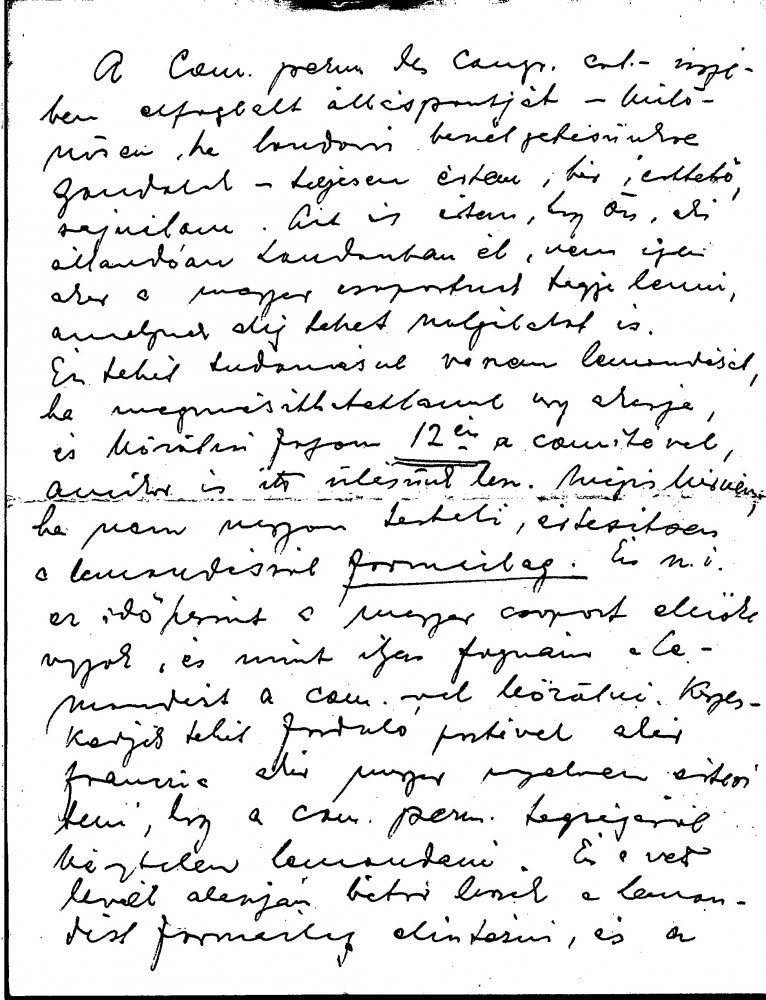 A Com. perm. des Congr. int.- ügyé-
ben elfoglalt álláspontját – külö-
nösen, ha londoni beszélgetésünkre
gondolok – teljesen értem, bár, érthető,
sajnálom. Azt is értem, hogy Ön, aki
állandóan Londonban él, nem igen
akar a magyar csoportnak tagja lenni,
amelynek alig lehet szolgálatot is.
Én tehát tudomásul veszem lemondását,
ha megmásíthatatlanul így akarja,
és közölni fogom 12én a comitével,
amikor is itt ülésünk lesz. Mégis kérném,
ha nem nagyon terheli, értesítsen
a lemondásról formailag. Én u.i.
ez idő szerint a magyar csoport elnöke
vagyok, és mint ilyen fognám a le-
mondást a com.-vel közölni. Kegyes-
kedjék tehát forduló postával akár
francia akár magyar nyelven értesí-
teni, hogy a com. perm. tagságáról
kénytelen lemondani. Én e
levél alapján bátor leszek a lemon-
dást formailag elintézni, és a